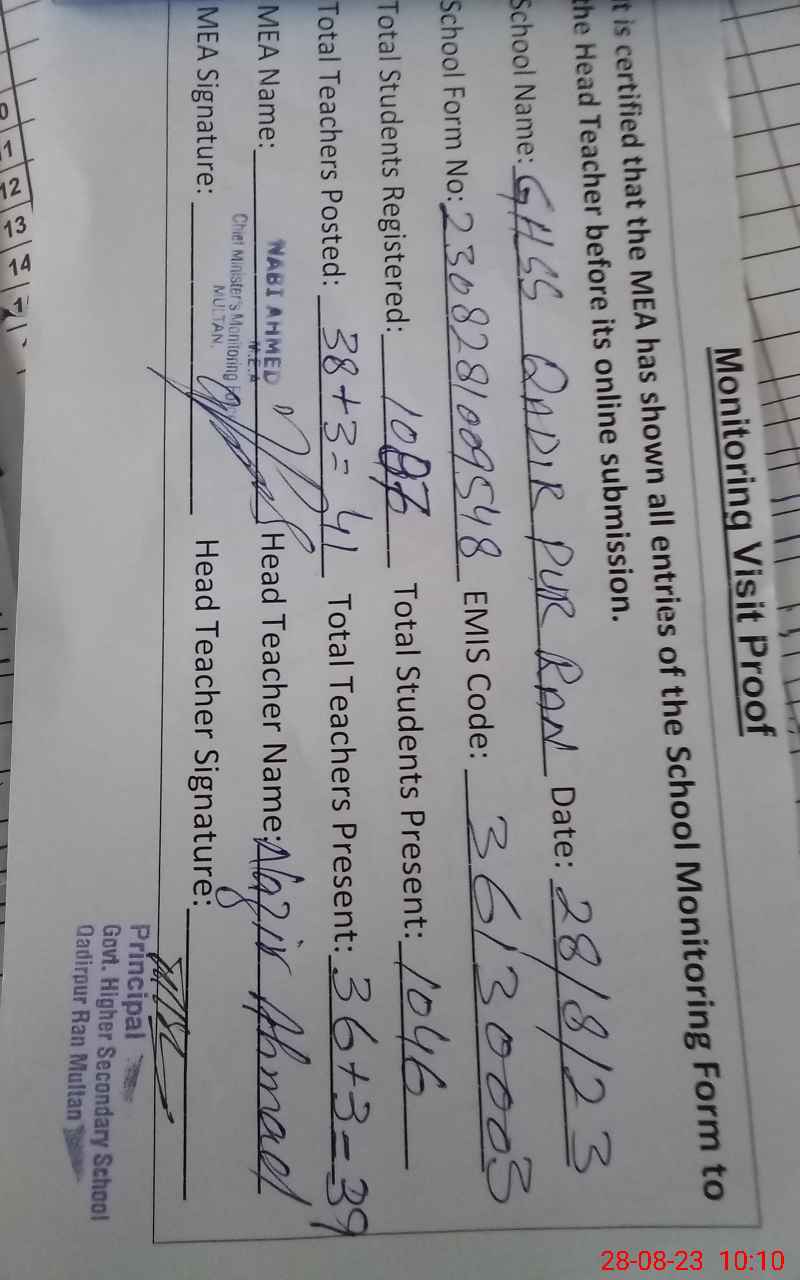 Monitoring Visit Proof
t is certified that the MEA has shown all entries of the School Monitoring Form to
the Head Teacher before its online submission.
School Name: GHSS QADIR PUR RAN Date: 28/8/23
School Form No: 2308281009548 EMIS Code: 36130003
Total Students Registered: 1087 Total Students Present: 1046
Total Teachers Posted: 38+3=41 Total Teachers Present: 36+3=39
MEA Name: Head Teacher Name: Nazir Ahmad
NABI AHMED
M.E.A
Chief Minister's Monitoring
MULTAN.
MEA Signature: Head Teacher Signature:
Principal
Govt. Higher Secondary School
Qadirpur Ran Multan
12
13
14
28-08-23 10:10